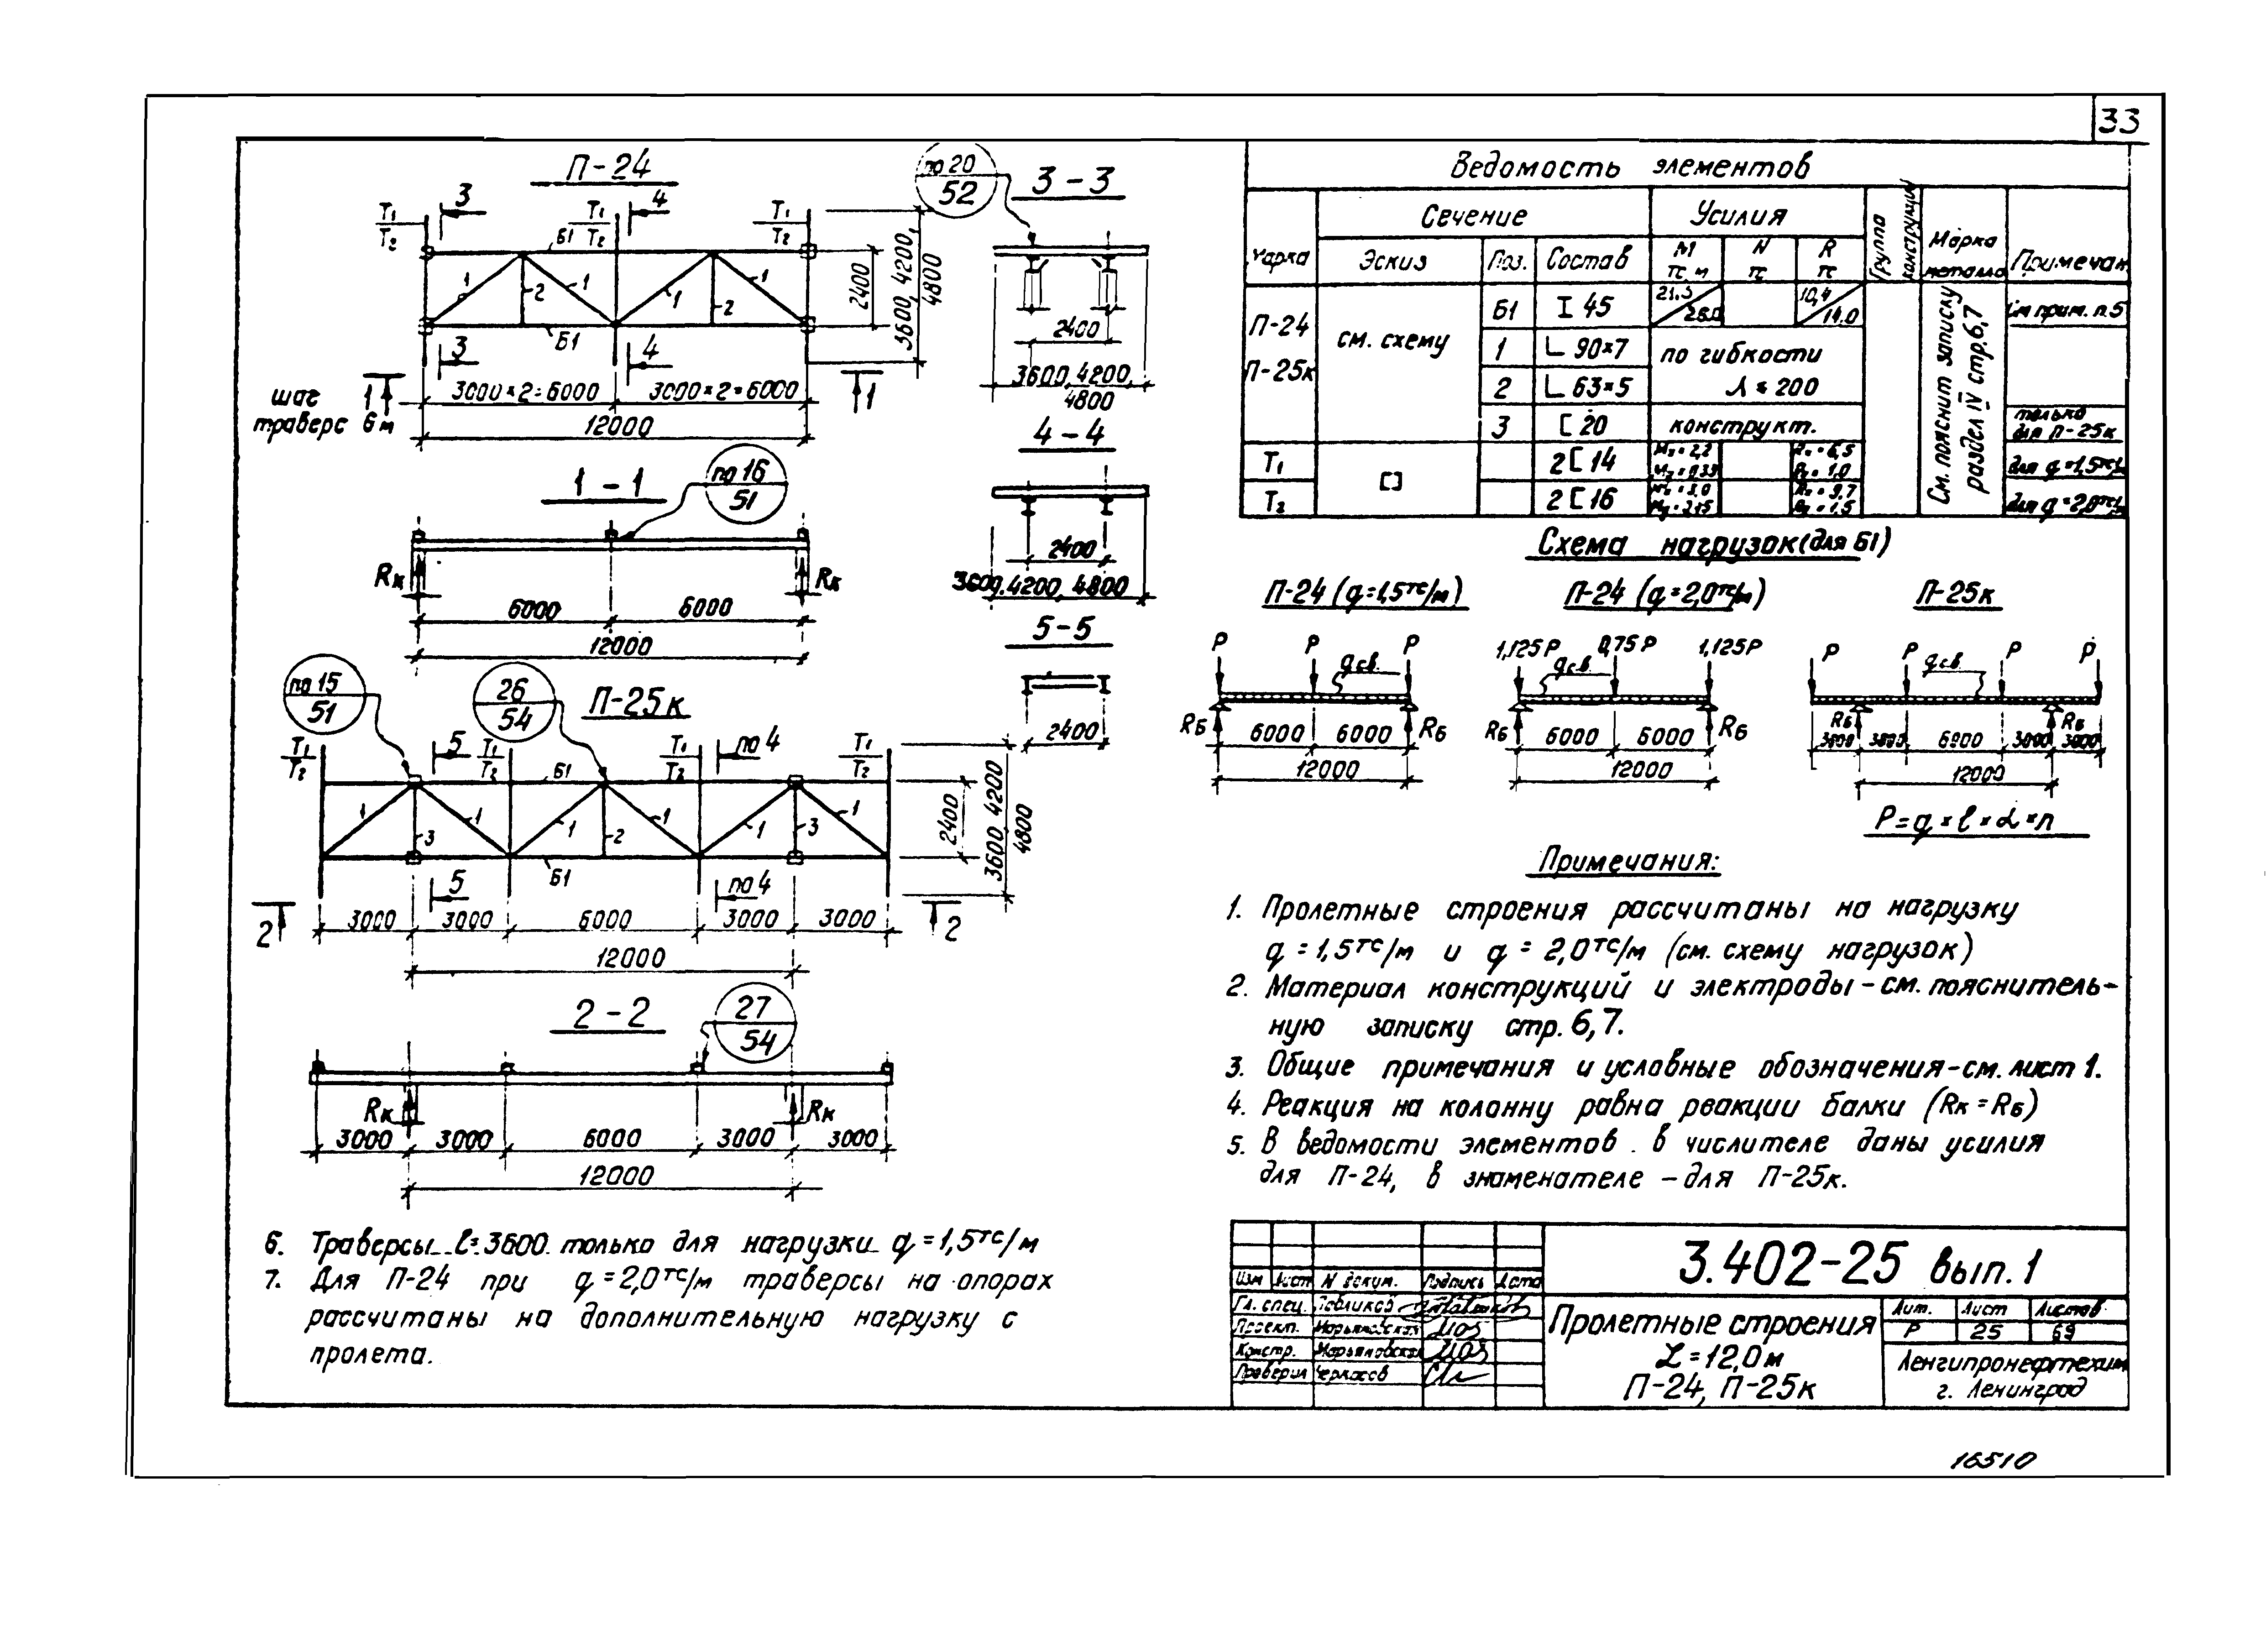 33
П-24
3
4
Т₁ Т₁ Т₁
Т₂ Т₂ Т₂
Б1
1 2 1 1 2 1
Б1
3
4
2400
3600, 4200,
4800
1 1
шаг
траверс 6м
3000×2=6000 3000×2=6000
12000
по 20
52
3-3
2400
3600, 4200,
4800
1-1
по 16
51
Rк Rк
6000 6000
12000
4-4
2400
3600, 4200, 4800
5-5
2400
по 15
51
26
54
П-25к
Т₁ Т₁ Т₁ Т₁
Т₂ Т₂ Т₂ Т₂
5 по 4
Б1
1 1 3 1 2 1 1 3 1
Б1
5 по 4
2400
3600 4200
4800
2 2
3000 3000 6000 3000 3000
12000
2-2
27
54
Rк Rк
3000 3000 6000 3000 3000
12000
6. Траверсы l=3600 только для нагрузки q=1,5тс/м
7. Для П-24 при q=2,0тс/м траверсы на опорах
рассчитаны на дополнительную нагрузку с
пролета.
Ведомость элементов
Марка Сечение Усилия Группа конструкции Марка металла Примечан
Эскиз Поз. Состав М тс м N тс R тс
П-24
П-25к
см. схему
Б1 I 45 21.3 26.0 10,4 14.0 См прим. п.5
1 ∟ 90×7 по гибкости
2 ∟ 63×5 λ = 200
3 [ 20 конструкт. только для П-25к
См. пояснит записку раздел IV стр.6,7
Т₁ [] 2[14 Rₓ = 6,5 для q=1,5тс/м
Т₂ 2[16 для q=2,0тс/м
Схема нагрузок (для Б1)
П-24 (q=1,5тс/м) П-24 (q=2,0тс/м) П-25к
Р Р Р 1,125Р 0,75Р 1,125Р Р Р Р Р
qсв. qсв. qсв.
Rб Rб Rб Rб Rб Rб
6000 6000 6000 6000 3000 3000 6000 3000 3000
12000 12000 12000
Р=q×l×α×n
Примечания:
1. Пролетные строения рассчитаны на нагрузку
q=1,5тс/м и q=2,0тс/м (см. схему нагрузок)
2. Материал конструкций и электроды-см. пояснитель-
ную записку стр. 6,7.
3. Общие примечания и условные обозначения-см. лист 1.
4. Реакция на колонну равна реакции балки (Rк=Rб)
5. В ведомости элементов в числителе даны усилия
для П-24, в знаменателе - для П-25к.
3.402-25 вып.1
Изм Лист N докум. Подпись Дата
Гл. спец.
Проект. Марьяновская
Констр. Марьяновская
Проверил Черкасов
Пролетные строения
L=12,0м
П-24, П-25к
Лит. Лист Листов
Р 25 69
Ленгипронефтехим
г. Ленинград
16510